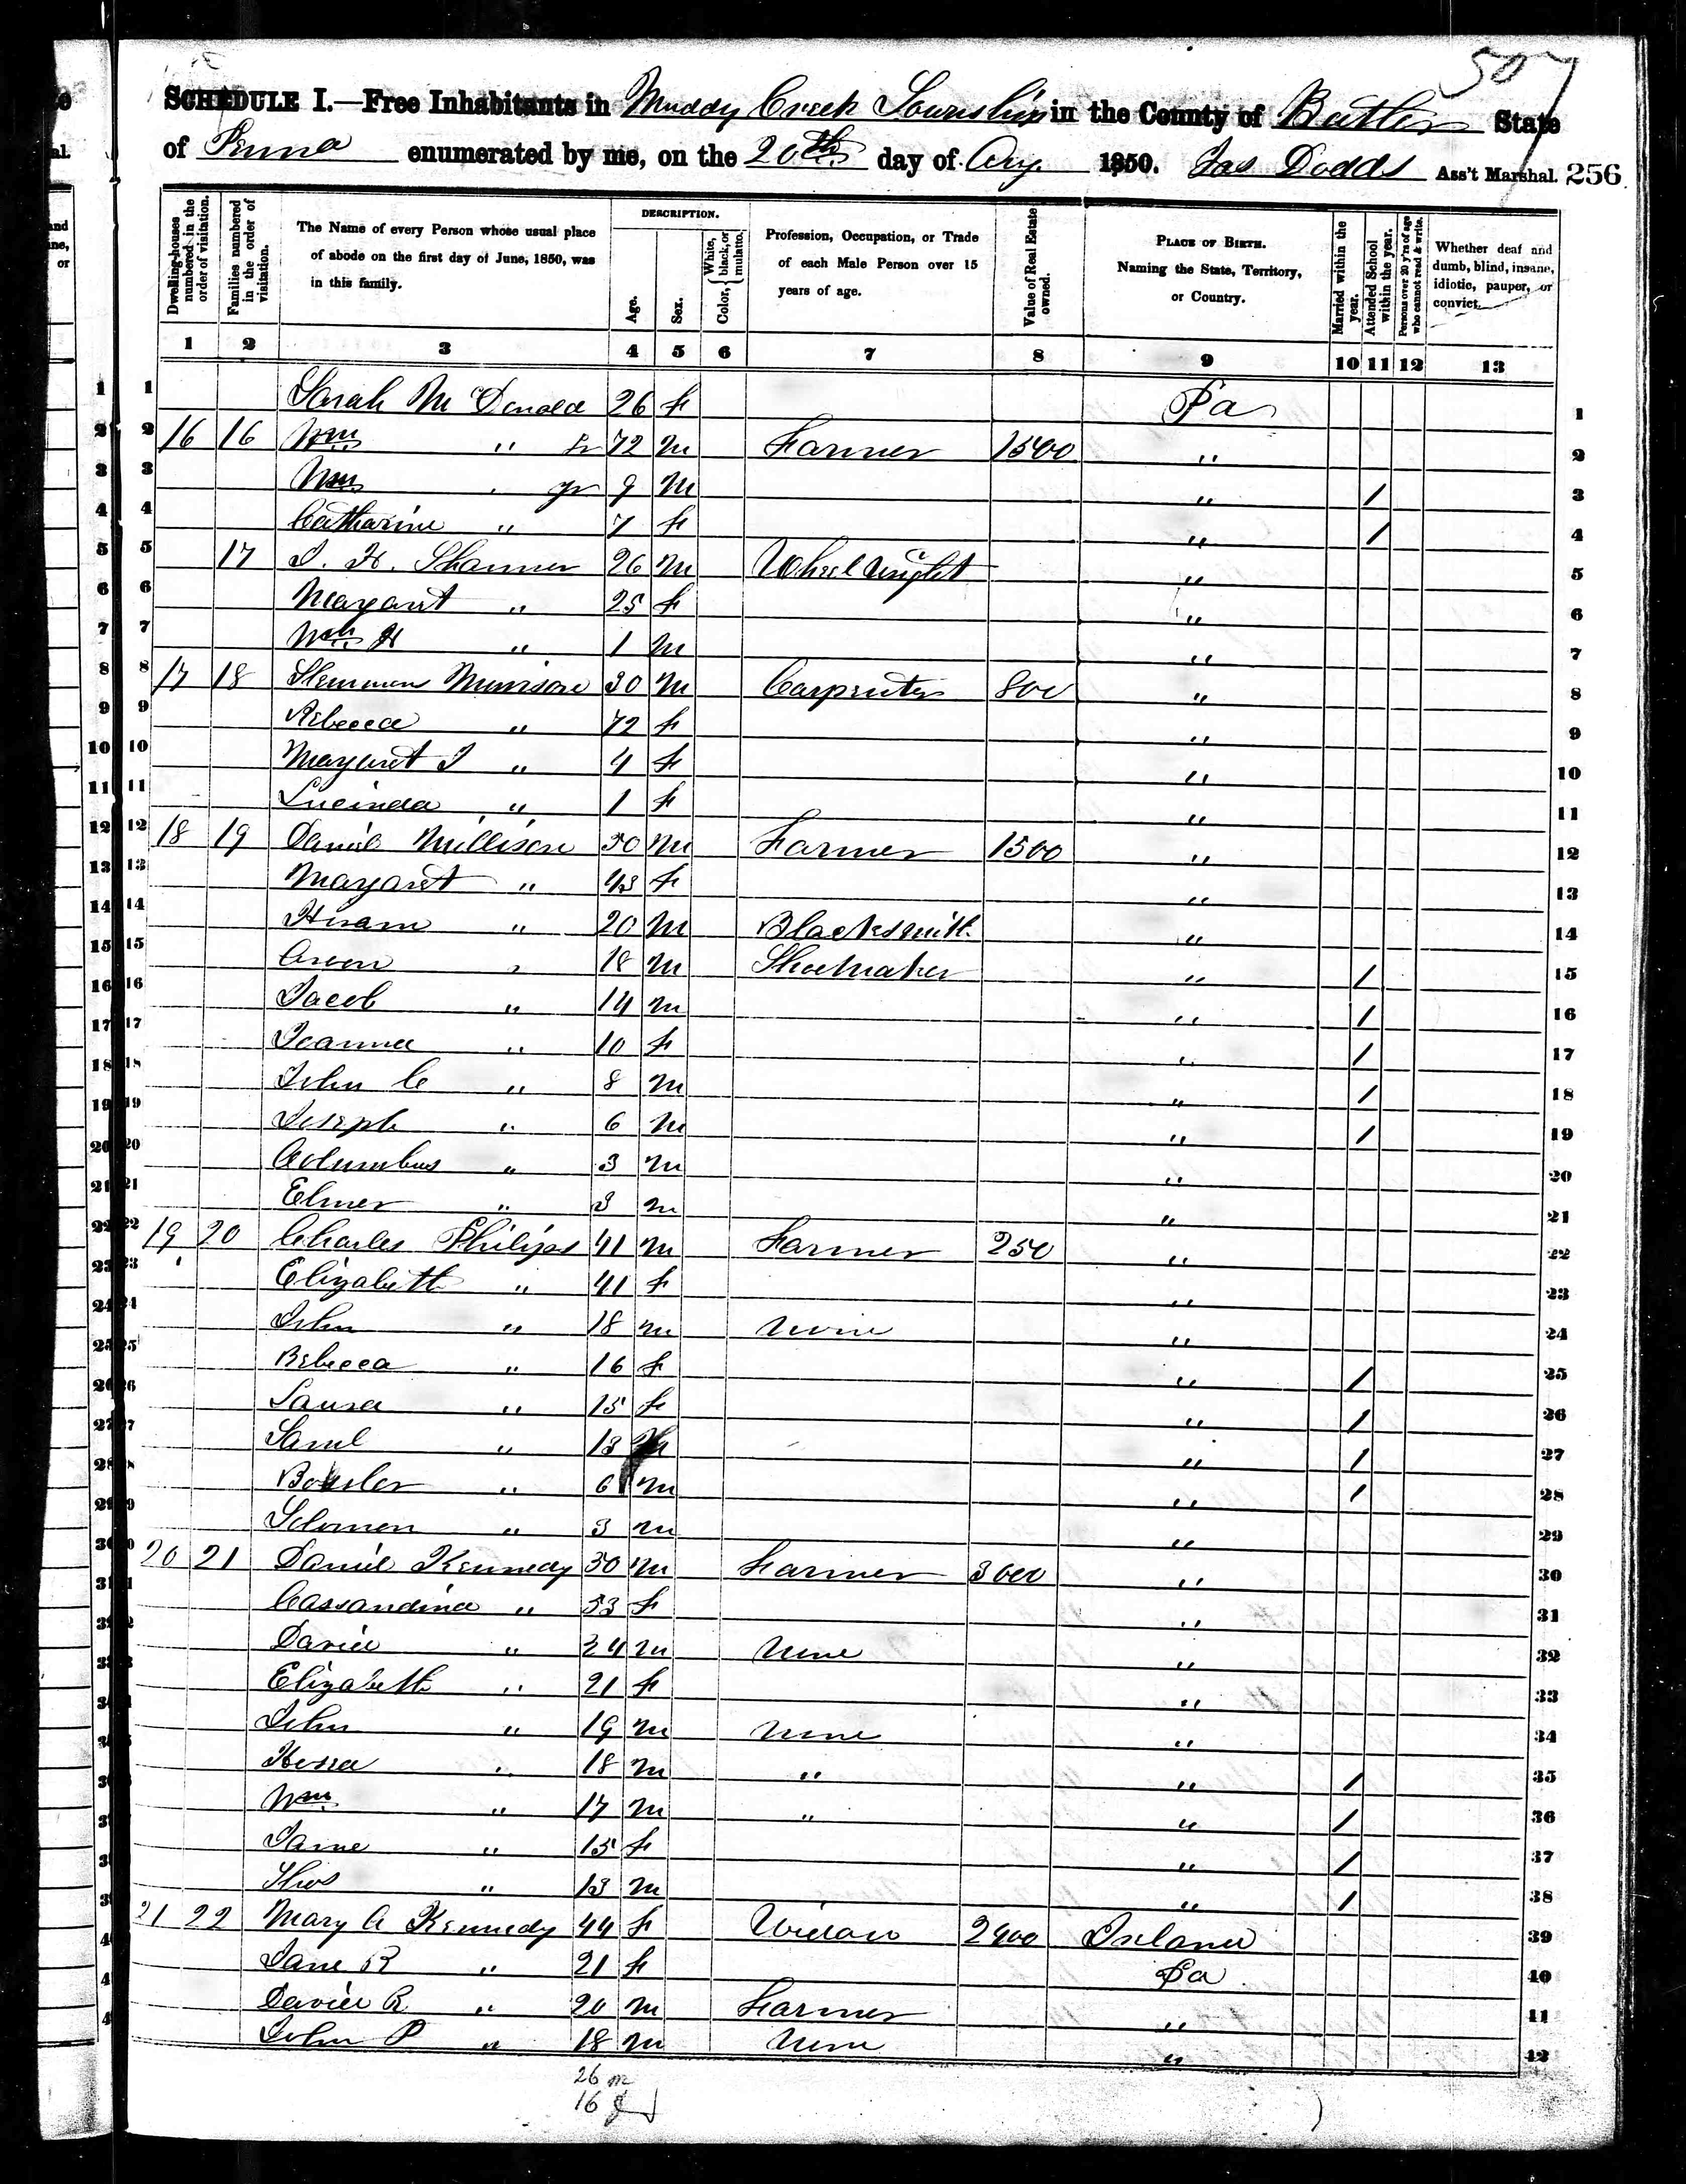 507
SCHEDULE I.—Free Inhabitants in Muddy Creek Township in the County of Butler State
of Penna enumerated by me, on the 20th day of Aug. 1850. Jas Dodds Ass't Marshal. 256
Dwelling-houses numbered in the order of visitation.
Families numbered in the order of visitation.
The Name of every Person whose usual place of abode on the first day of June, 1850, was in this family.
DESCRIPTION.
Age.
Sex.
Color, { White, black, or mulatto.
Profession, Occupation, or Trade of each Male Person over 15 years of age.
Value of Real Estate owned.
PLACE OF BIRTH. Naming the State, Territory, or Country.
Married within the year.
Attended School within the year.
Persons over 20 y'rs of age who cannot read & write.
Whether deaf and dumb, blind, insane, idiotic, pauper, or convict.
1 2 3 4 5 6 7 8 9 10 11 12 13
1 Sarah McDonald 26 f Pa 1
2 16 16 Wm " Sr 72 m Farmer 1500 " 2
3 Wm " Jr 9 m " / 3
4 Catharine " 7 f " / 4
5 17 J. H. Shanner 26 m Wheelwright " 5
6 Margaret " 25 f " 6
7 Wm H " 1 m " 7
8 17 18 30 m Carpenter 800 " 8
9 Rebecca " 72 f " 9
10 Margaret J " 4 f " 10
11 Lucinda " 1 f " 11
12 18 19 Daniel Millison 50 m Farmer 1500 " 12
13 Margaret " 43 f " 13
14 Hiram " 20 m Blacksmith " 14
15 " 18 m Shoemaker " / 15
16 Jacob " 14 m " / 16
17 Joanna " 10 f " / 17
18 John C " 8 m " / 18
19 Joseph " 6 m " / 19
20 Columbus " 3 m " 20
21 Elmer " 3 m " 21
22 19 20 Charles Philips 41 m Farmer 250 " 22
23 Elizabeth " 41 f " 23
24 John " 18 m None " 24
25 Rebecca " 16 f " / 25
26 Laura " 15 f " / 26
27 Saml " 13 m " / 27
28 " 6 m " / 28
29 Solomon " 3 m " 29
30 20 21 Daniel Kennedy 50 m Farmer 3000 " 30
31 Cassandina " 53 f " 31
32 David " 24 m None " 32
33 Elizabeth " 21 f " 33
34 John " 19 m None " 34
35 " 18 m " " / 35
36 Wm " 17 m " " / 36
37 Jane " 15 f " / 37
38 Thos " 13 m " / 38
39 21 22 Mary A Kennedy 44 f Widow 2900 Ireland 39
40 Jane R " 21 f Pa 40
41 David R " 20 m Farmer " 41
42 John P " 18 m None " 42
26 m
16 f